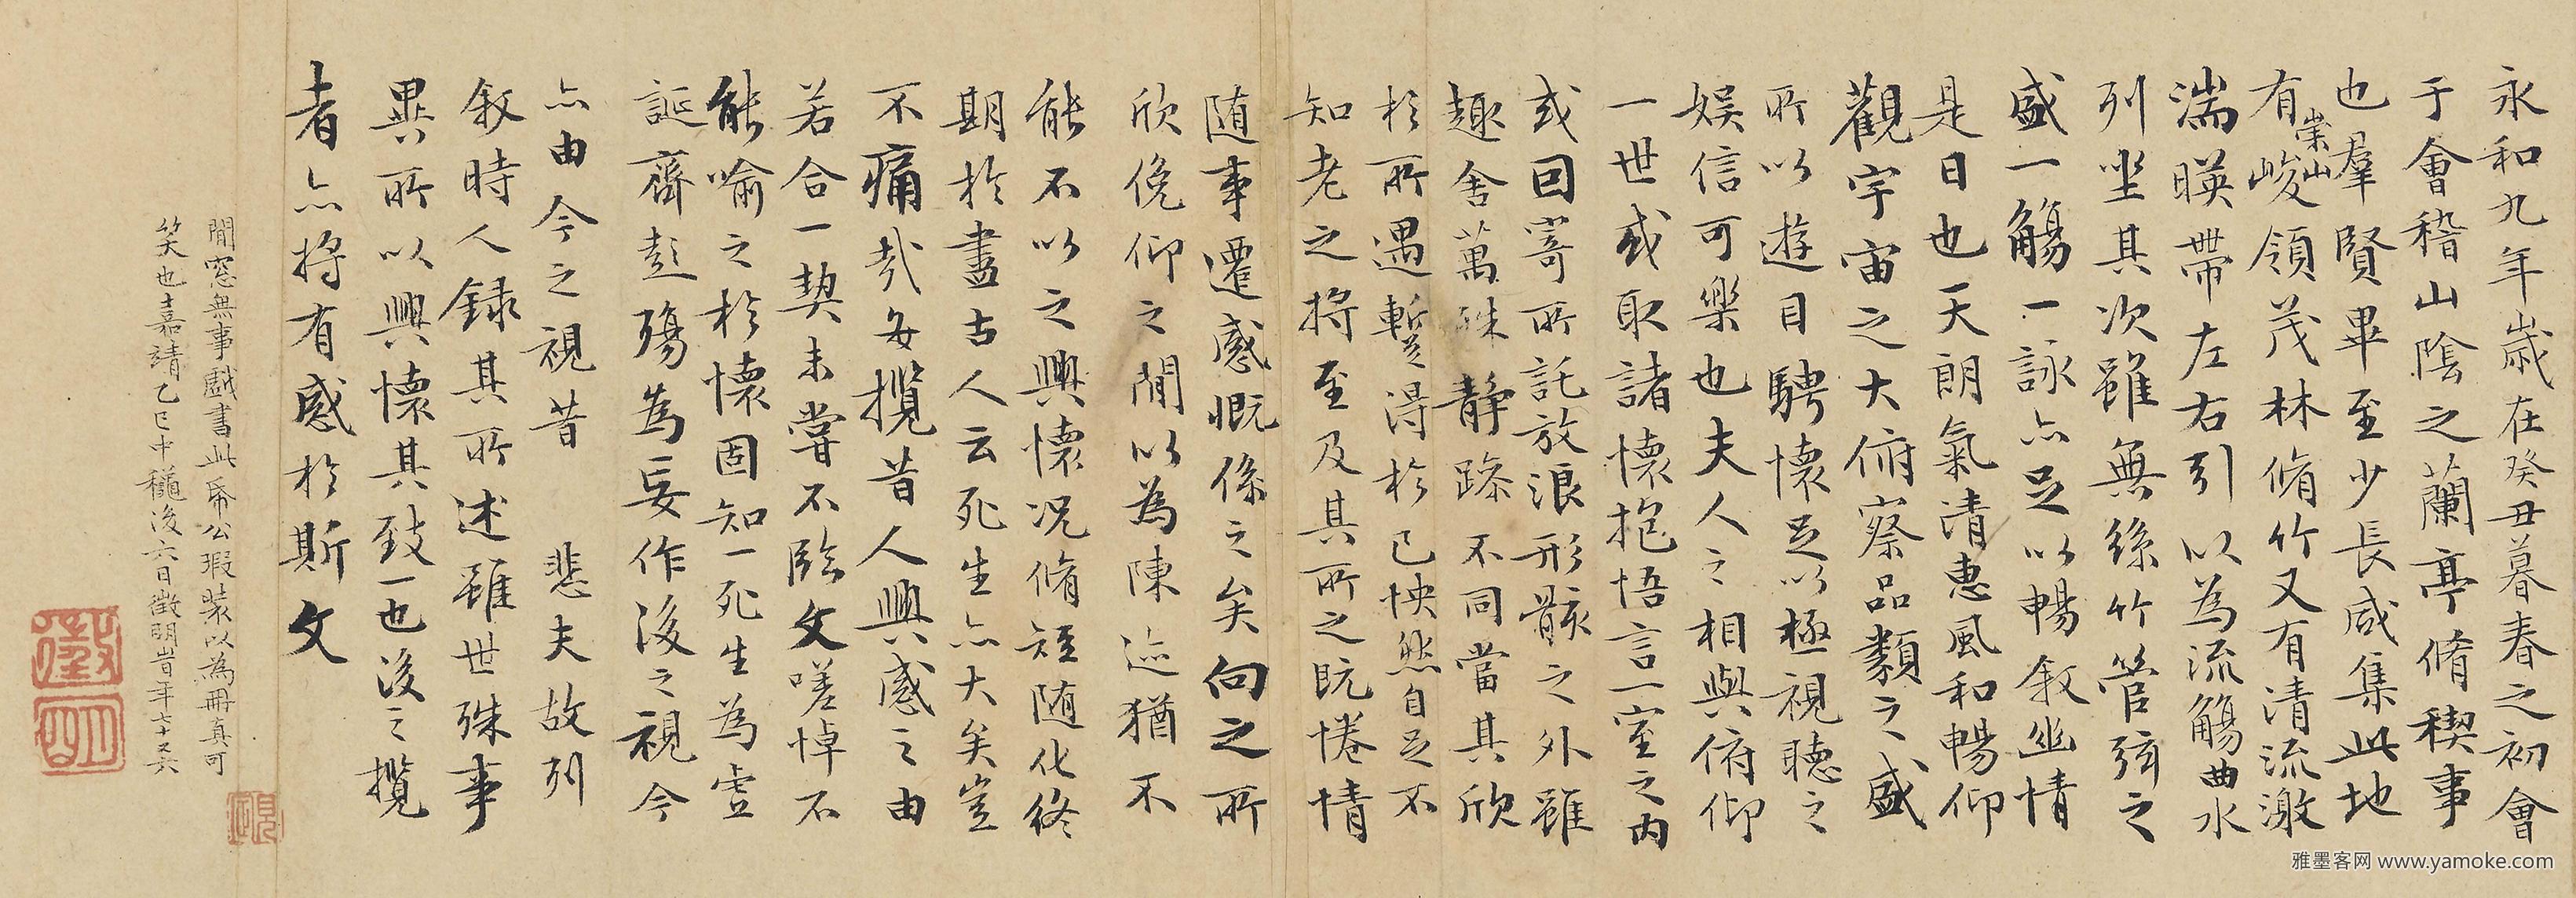 永和九年歲在癸丑暮春之初會
于會稽山陰之蘭亭脩稧事
也羣賢畢至少長咸集此地
有崇山峻領茂林脩竹又有清流激
湍暎帶左右引以為流觴曲水
列坐其次雖無絲竹管弦之
盛一觴一詠亦足以暢叙幽情
是日也天朗氣清惠風和暢仰
觀宇宙之大俯察品類之盛
所以遊目騁懷足以極視聽之
娱信可樂也夫人之相與俯仰
一世或取諸懷抱悟言一室之内
或因寄所託放浪形骸之外雖
趣舍萬殊靜躁不同當其欣
於所遇暫得於己怏然自足不
知老之將至及其所之既惓情
随事遷感慨係之矣向之所
欣俛仰之閒以為陳迹猶不
能不以之興懷况脩短随化終
期於盡古人云死生亦大矣豈
不痛哉每攬昔人興感之由
若合一契未嘗不臨文嗟悼不
能喻之於懷固知一死生為虛
誕齊彭殤為妄作後之視今
亦由今之視昔 悲夫故列
叙時人録其所述雖世殊事
異所以興懷其致一也後之攬
者亦將有感於斯文
閒窓無事戲書此帋公瑕裝以為冊真可
笑也嘉靖乙巳中穐後六日徵明旹年七十又六
徵明
雅墨客网 www.yamoke.com